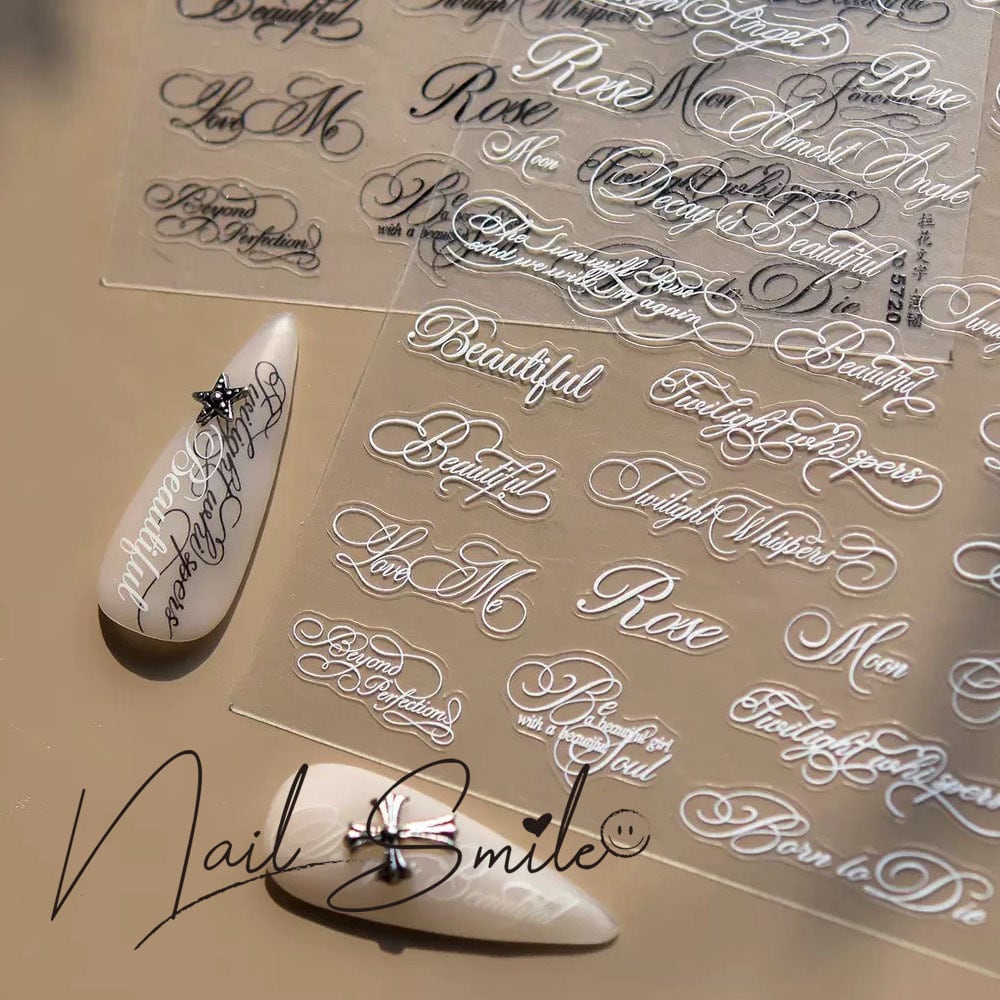 Beautiful
Twilight Whispers
Angel
Love Me
Rose
Rose
Moon
Forever
Rose
Almost Angle
Moon
Twilight whispers
Decay is Beautiful
Beyond
Perfection
Be
with a beau
The Sun will Rise
and we will Try again
to Die
拉花文字·
5720
Beautiful
Beautiful
Twilight whispers
Beautiful
Twilight Whispers
Love Me
Rose
Moon
Beyond
Perfection
Be
a beautiful girl
with a beautiful
Soul
Twilight whispers
Born to Die
Twilight whispers
Beautiful
Beautiful
Nail Smile